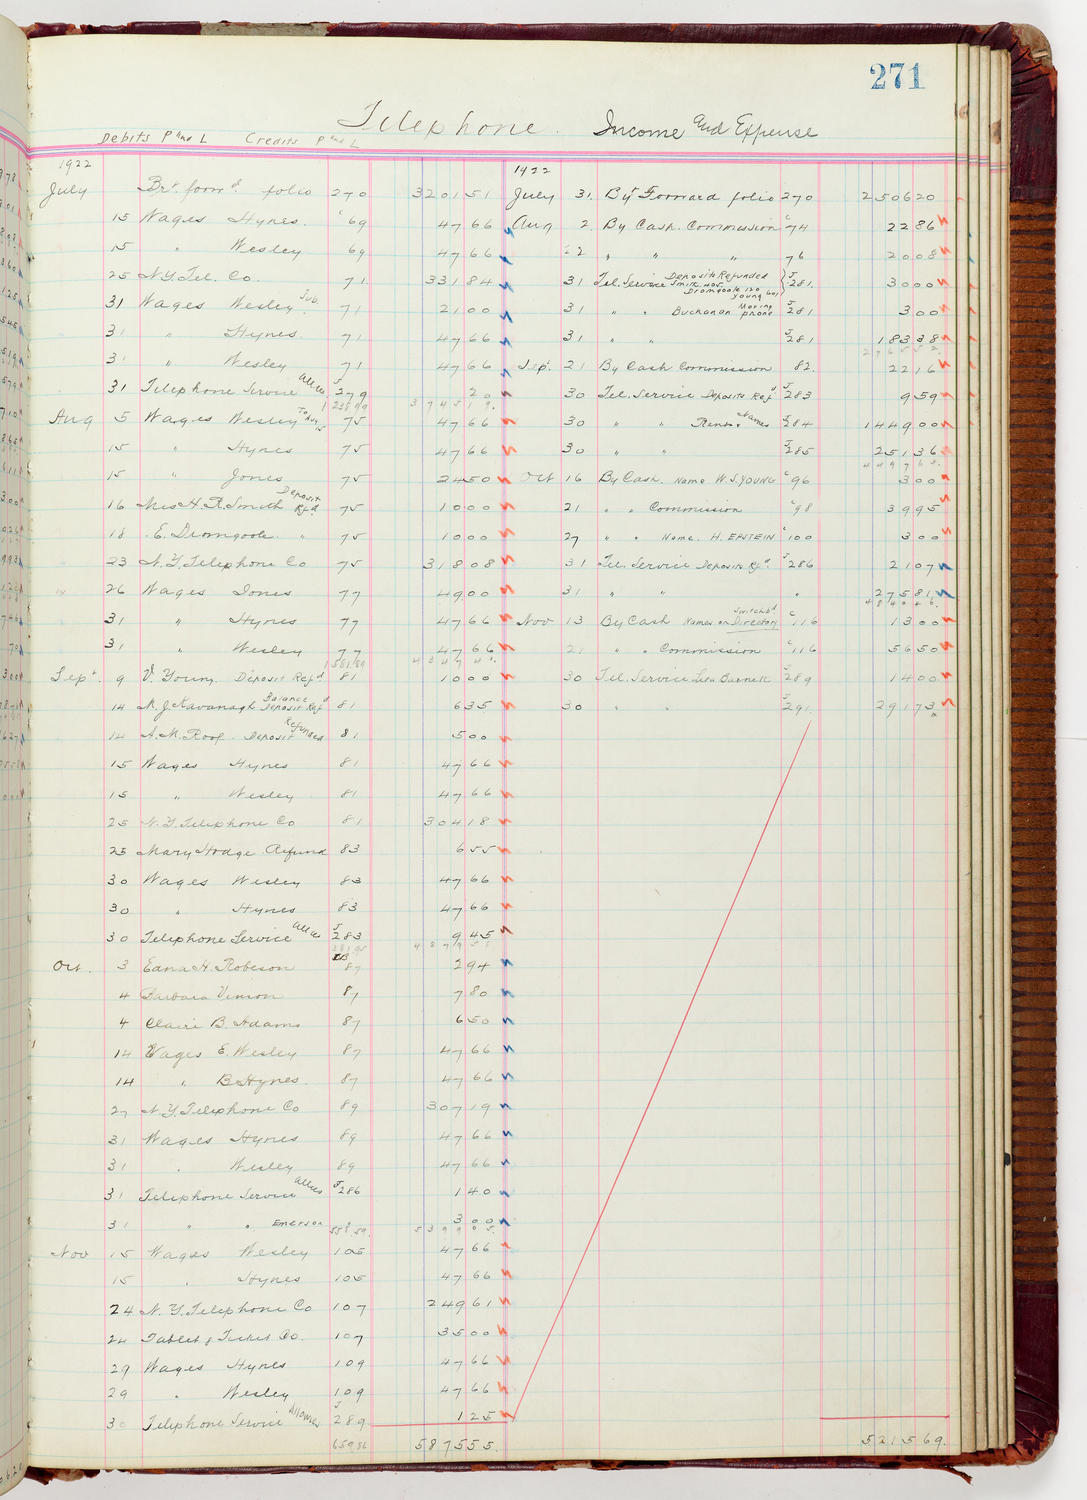 271
Telephone. Income and Expense
Debits P and L Credits P and L
1922
July Brt. forwd folio 270 3201 51
15 Wages Hynes. c69 47 66
15 " Wesley 69 47 66
25 N.Y. Tel. Co. 71 331 84
31 Wages Wesley Sub. 71 21 00
31 " Hynes. 71 47 66
31 " Wesley 71 47 66
31 Telephone Service Allces J279 20
123899 3745 19.
Aug 5 Wages Wesley 75 47 66
15 " Hynes 75 47 66
15 " Jones 75 24 50
16 Mrs H. R. Smith Deposit Rfd 75 10 00
18 E. Dromgoole " 75 10 00
23 N.Y. Telephone Co 75 318 08
26 Wages Jones 77 49 00
31 " Hynes 77 47 66
31 " Wesley 77 47 66
4347 41.
Sept. 9 V. Young. Deposit Refd 81 10 00
14 M. J. Kavanagh Balance Deposit Refd 81 6 35
14 A. M. Roof. Deposit Refunded 81 5 00
15 Wages Hynes 81 47 66
15 " Wesley 81 47 66
25 N.Y. Telephone Co 81 304 18
25 Mary Hodge Refund 83 6 55
30 Wages Wesley 83 47 66
30 " Hynes 83 47 66
30 Telephone Service Allces J283 9 45
4879 58
Oct. 3 Edna H. Robeson 87 2 94
4 Barbara Vinson 87 7 80
4 Claire B. Adams 87 6 50
14 Wages E. Wesley 87 47 66
14 " B Hynes. 87 47 66
27 N.Y. Telephone Co 89 307 19
31 Wages Hynes 89 47 66
31 " Wesley 89 47 66
31 Telephone Service Allces J286 1 40
31 " " Emerson 3 00
5399 05.
Nov 15 Wages Wesley 105 47 66
15 " Hynes 105 47 66
24 N.Y. Telephone Co 107 249 61
24 Tablet & Ticket Co. 107 35 00
29 Wages Hynes 109 47 66
29 " Wesley 109 47 66
30 Telephone Service Allowces J289 1 25
65986 5875 55.
1922
July 31. By Forward folio 270 2506 20
Aug 2. By Cash. Commission c74 22 86
22 " " " 76 20 08
31 Tel. Service Deposits Refunded Smith Dromgoole 120 Young 601 J281. 30 00
31 " " Buchanan Moving phone J281 3 00
31 " " J281 183 38
2765 52.
Sept. 21 By Cash Commission 82. 22 16
30 Tel. Service Deposits Refd J283 9 59
30 " " Rents & Names J284 1449 00
30 " " J285 251 36
4497 63.
Oct 16 By Cash. Name W. S. YOUNG c96 3 00
21 " " Commission c98 39 95
27 " " Name. H. EPSTEIN c100 3 00
31 Tel. Service Deposits Rfd. J286 21 07
31 " " " 275 81
4840 46.
Nov 13 By Cash Names on Switchbd Directory c116 13 00
21 " " Commission c116 56 50
30 Tel. Service Lea Barnek J289 14 00
30 " " J291. 291 73
5215 69.